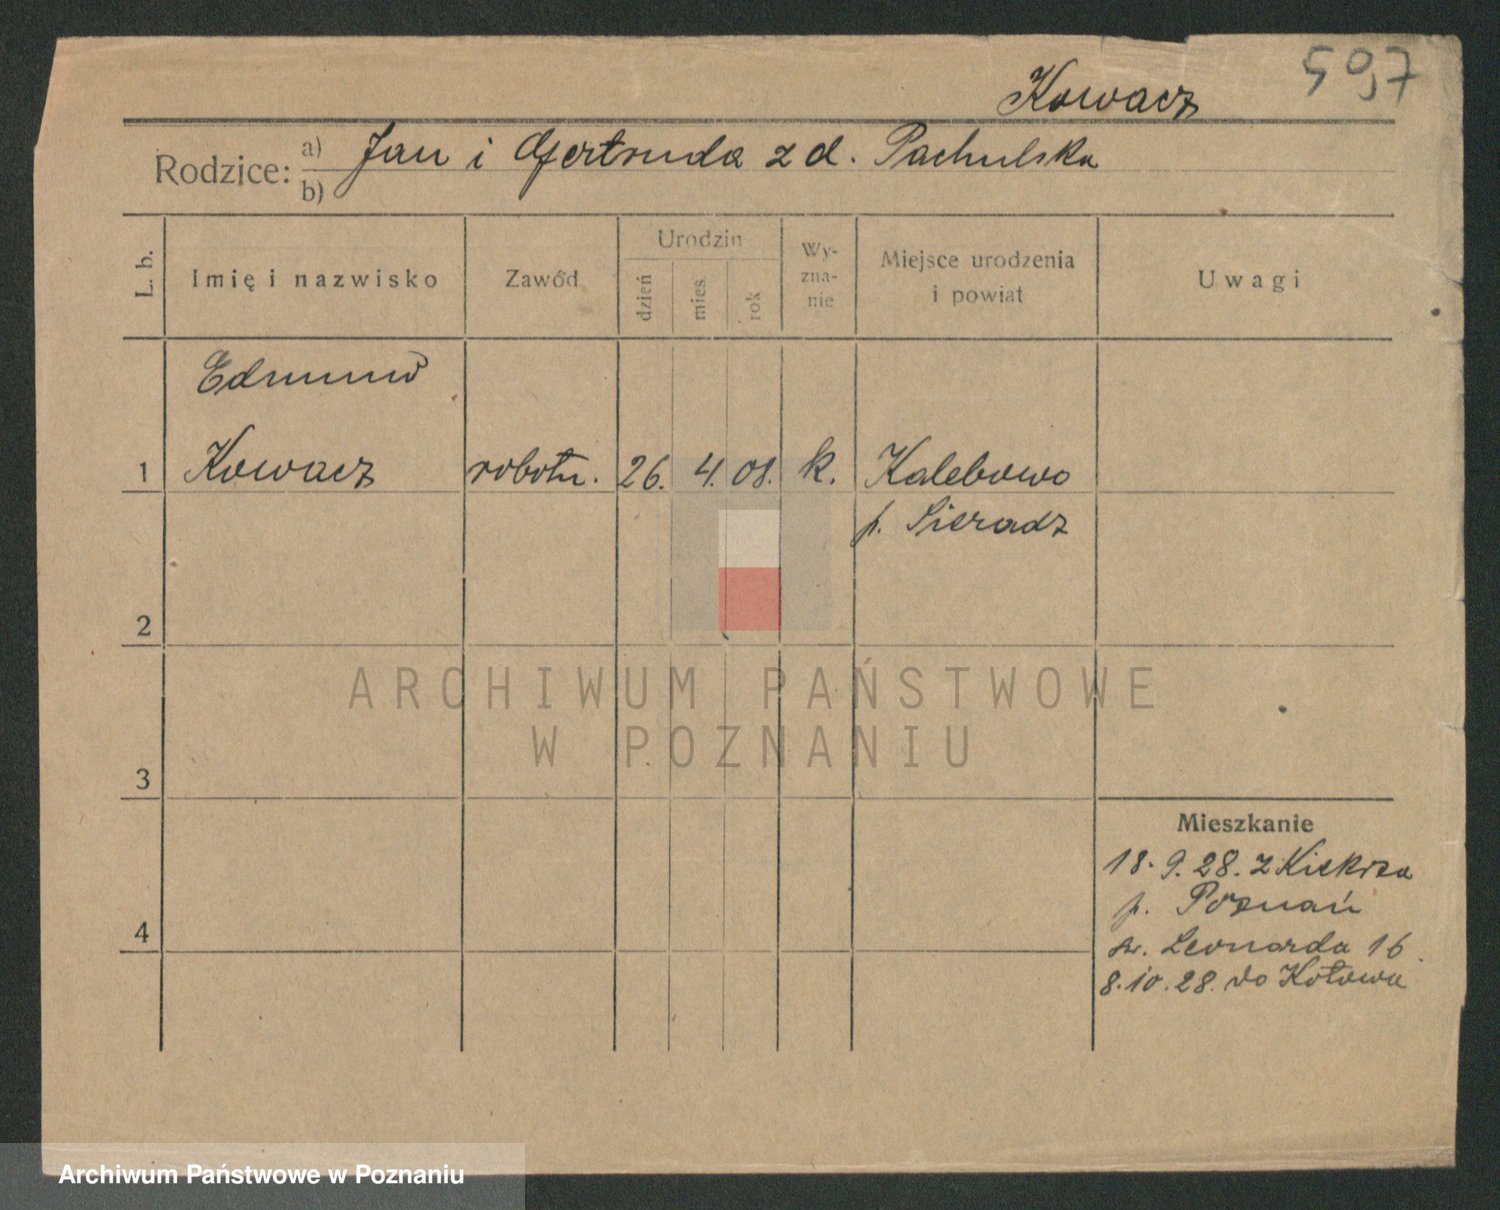 Kowacz
597
Rodzice: a) Jan i Gertruda z d. Pachulska
b)
L. b.
Imię i nazwisko
Zawód
Urodzin
dzień
mies.
rok
Wy-
zna-
nie
Miejsce urodzenia
i powiat
Uwagi
Edmund
1 Kowacz robotn. 26. 4. 08. k. Kalebowo
p. Sieradz
2
ARCHIWUM PAŃSTWOWE
W POZNANIU
3
Mieszkanie
18. 9. 28. z Kiekrza
p. Poznań
4
św. Leonarda 16.
8. 10. 28. do Kotowa
Archiwum Państwowe w Poznaniu